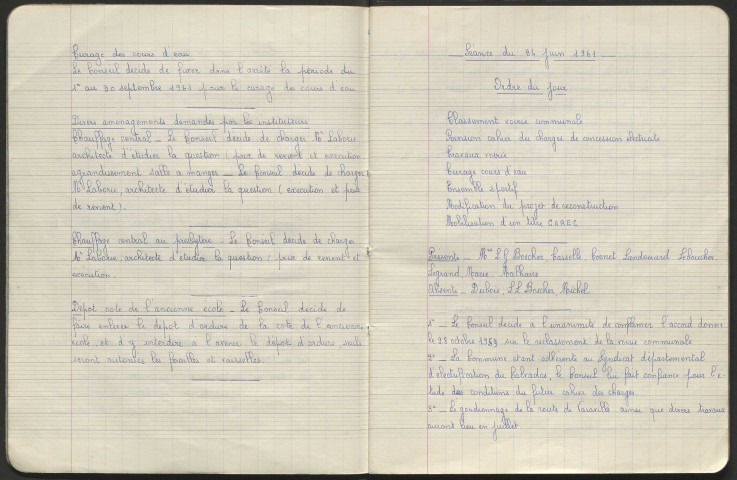 Curage des cours d'eau
Le Conseil décide de fixer dans l'avenir la période du
1er au 30 septembre 1961 pour le curage des cours d'eau
Divers amenagements demandés par les instituteurs
Chauffage central _ Le Conseil décide de charger Mr Laborie
architecte d'étudier la question (prix de revient et execution
agrandissement salle a manger _ Le Conseil décide de charger
Mr Laborie, architecte d'étudier la question (execution et prix
de revient).
Chauffage central au presbytère _ Le Conseil décide de charger
Mr Laborie, architecte d'étudier la question (prix de revient et
execution.
Depot cote de l'ancienne ecole _ Le Conseil décide de
faire enlever le depot d'ordure de la cote de l'ancienne
ecole et d'y interdire a l'avenir le depot d'ordure, seuls
seront autorises les fouilles et vaisselles.
Séance du 24 juin 1961
Ordre du jour
Classement voirie communale
Revision cahier du charges de concession électricité
Travaux voirie
Curage cours d'eau
Ensemble sportif
Modification du projet de reconstruction
Mobilisation d'un titre CAREC
Presents _ Mrs L J Boscher Casselle Cornet Landouard Leboucher
Legrand Marie Malhaire
Absents _ Dubois, L L Boscher Michel
1° _ Le Conseil décide a l'unanimité de confirmer l'accord donner
le 28 octobre 1959 sur le reclassement de la voirie communale
2° _ La Commune etant adhérente au Syndicat départemental
d'electrification du Calvados, le Conseil lui fait confiance pour l'e-
tude des conditions du futur cahier des charges
3° _ Le goudronnage de la route de Varaville ainsi que divers travaux
auront lieu en juillet